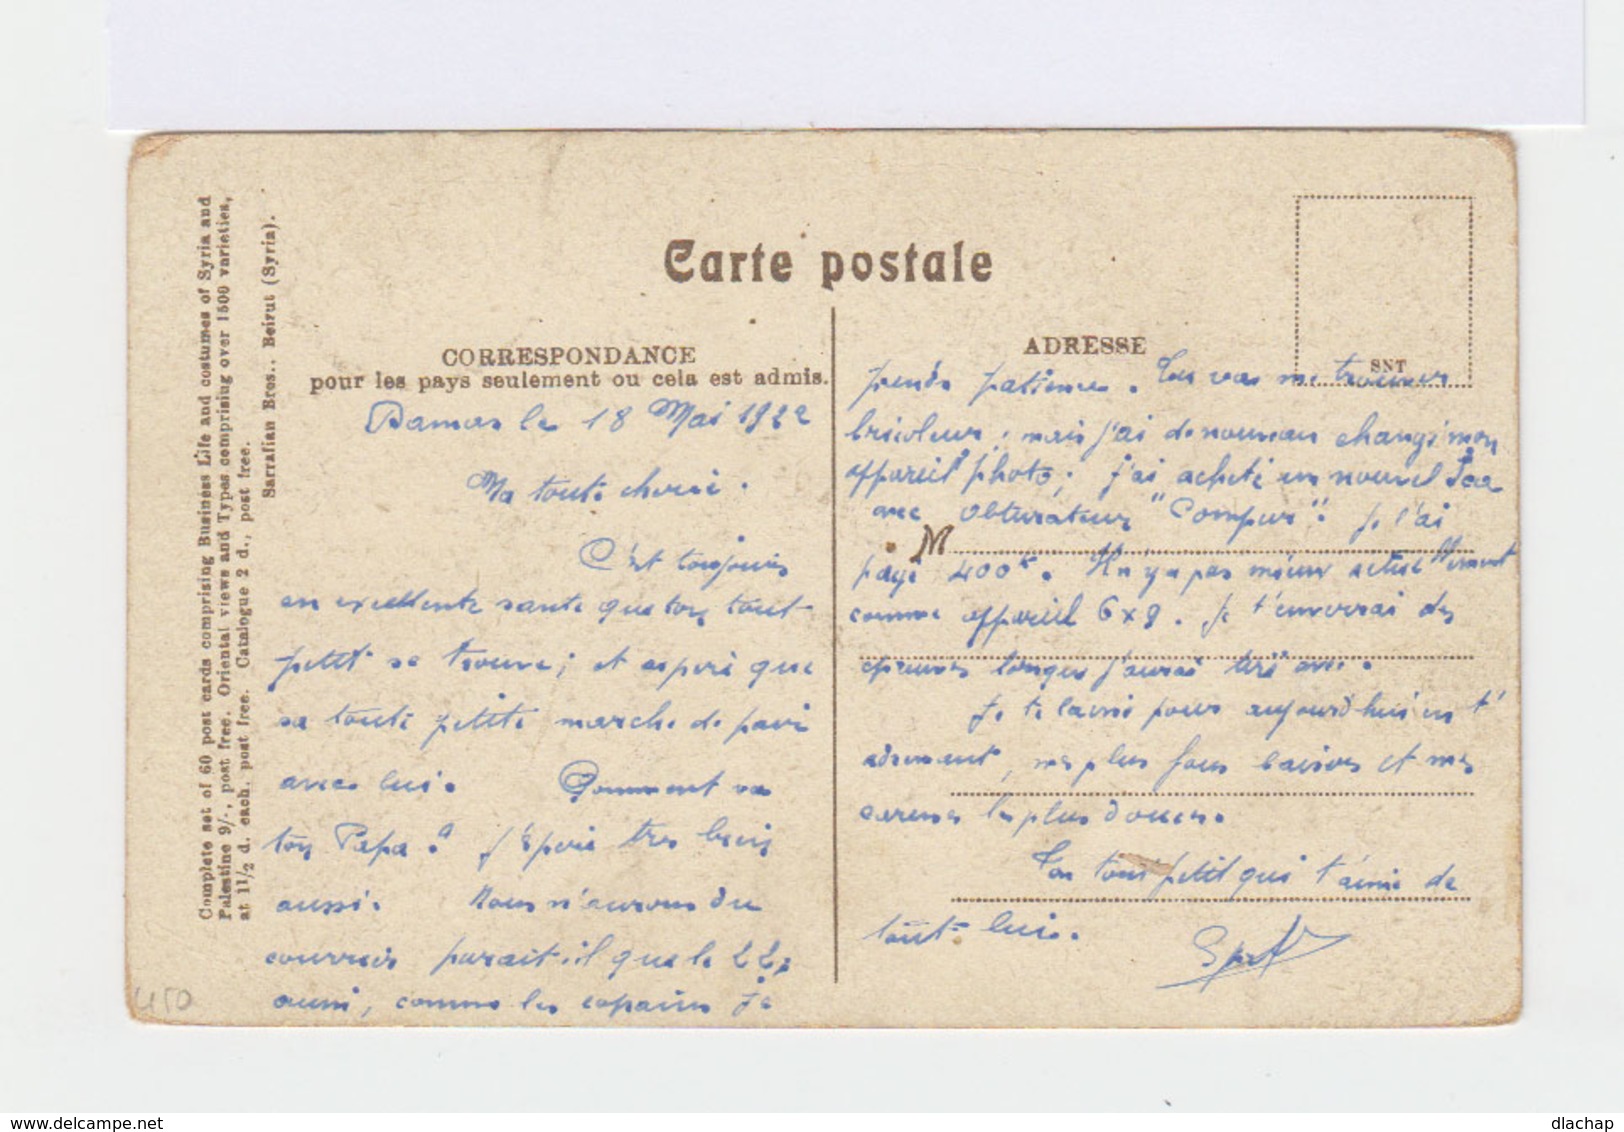 Carte postale
CORRESPONDANCE
pour les pays seulement ou cela est admis.
ADRESSE
SNT
Complete set of 60 post cards comprising Business Life and costumes of Syria and
Palestine 9/-, post free. Oriental views and Types comprising over 1500 varieties,
at 1 1/2 d. each. post free. Catalogue 2 d., post free.
Sarrafian Bros.. Beirut (Syria).
Damas le 18 Mai 1922
Ma toute cherie.
C'est toujours
en excellente sante que ton tout
petit se trouve; et espere que
sa toute petite marche de pair
avec lui. Comment va
ton Papa? J'espère tres bien
aussi. Nous n'aurons du
courrier parait-il que le 22,
aussi, comme les copains je
prends patience. Tu vas me trouver
bricoleur; mais j'ai de nouveau changé mon
appareil photo; j'ai acheté un nouvel
avec Obturateur "Compur". Je l'ai
M
payé 400 . Il n'y a pas mieux actuellement
comme appareil 6x9. Je t'enverrai des
epreuves lorsque j'aurai tiré avec.
Je te laisse pour aujourd'hui en t'
adressant, mes plus fous baisers et mes
caresses les plus douces.
Ton tout petit qui t'aime de
tout lui.
450
dlachap